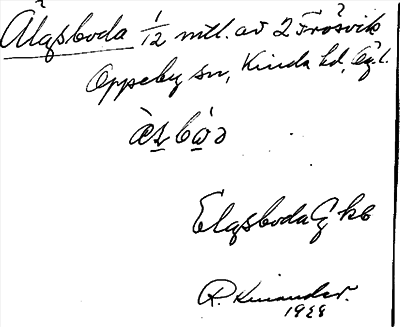 Älgsboda 1/12 mtl. av 2 Frösvik
Oppeby sn, Kinda hd, Ög l.
Elgsboda Gk
R. Kinander.